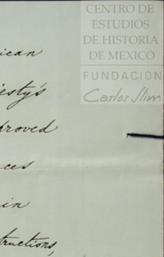 CENTRO DE
ESTUDIOS
DE HISTORIA
DE MEXICO
FUNDACIÓN
Carlos Slim
esty's
proved
in
structions,